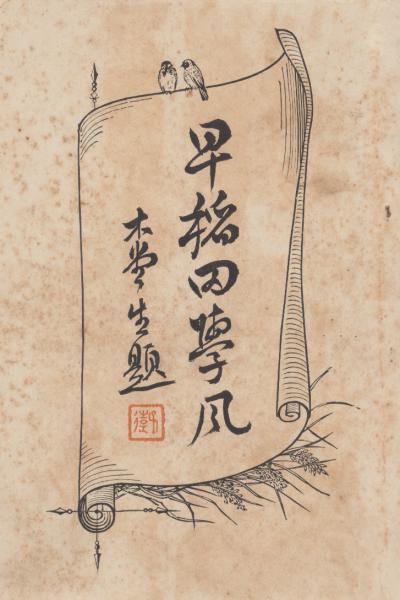 早稲田學風
木堂生題